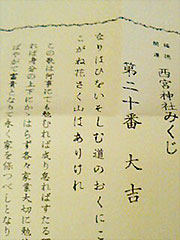 福徳
開運
西宮神社みくじ
第二十番 大吉
なりはひをいそしむ道のおくにこ
こがね花さく山はありけれ
この歌は何事にても勉れば成り怠ればすたる理
れば身分の上下にかゝはらず各々家業大切に勉
ばやがて富貴となりて永く家を保つべしとなり